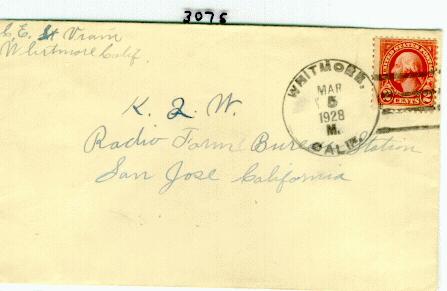 3075
C.E. St Vrain
Whitmore Calif.
WHITMORE,
MAR
5
1928
M.
CALIF.
UNITED STATES POSTAGE
2 CENTS 2
K. Q. W.
Radio Farm Bureau Station
San Jose California